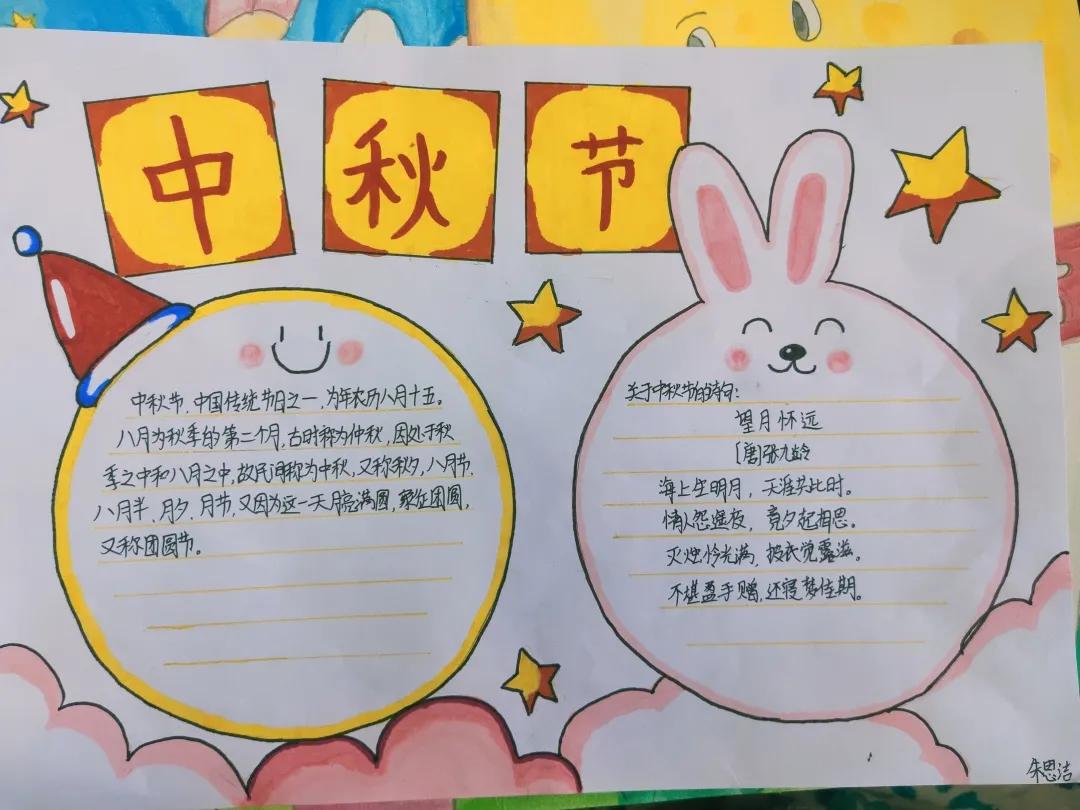 中秋节
中秋节、中国传统节日之一,为年农历八月十五。
八月为秋季的第二个月,古时称为仲秋,因处于秋
季之中和八月之中,故民间称为中秋,又称秋夕,八月节、
八月半、月夕、月节,又因为这一天月亮满圆,象征团圆,
又称团圆节。
关于中秋节的诗句:
望月怀远
[唐]张九龄
海上生明月,天涯共此时。
情人怨遥夜,竟夕起相思。
灭烛怜光满,披衣觉露滋。
不堪盈手赠,还寝梦佳期。
朱思洁